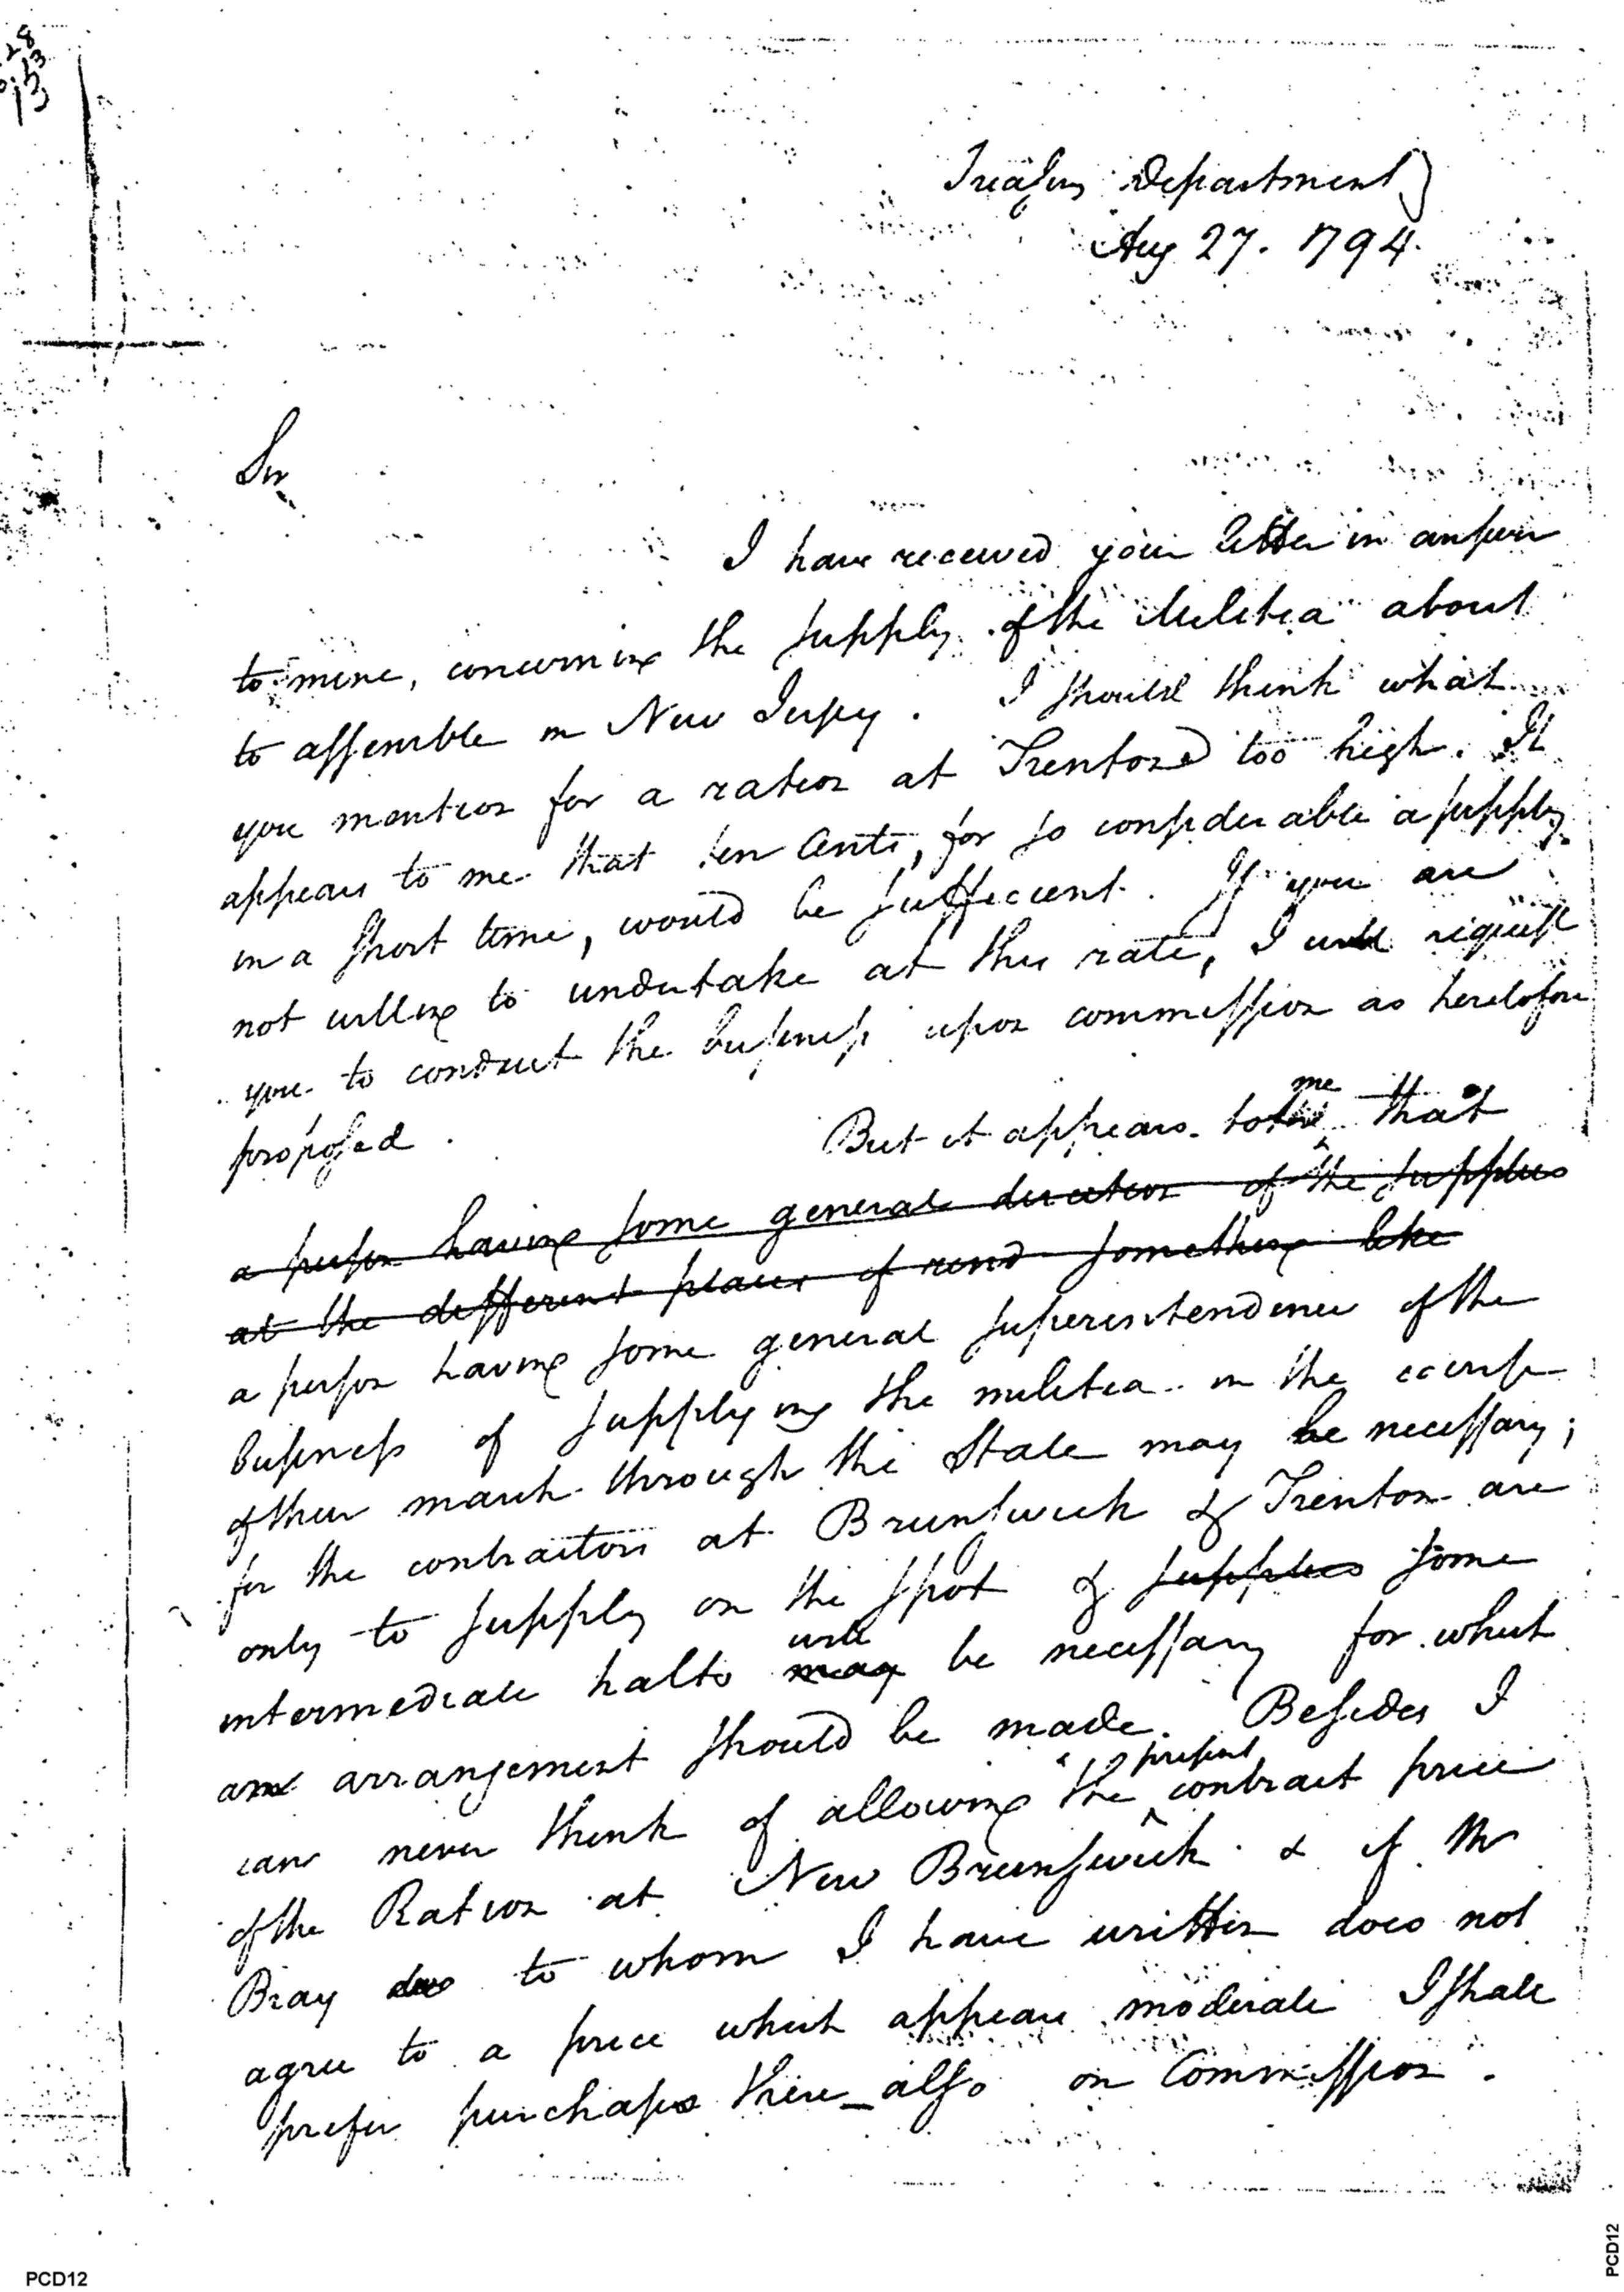 28
13
13
Treasury Department
Aug 27. 1794.
Sir
I have received your letter in answer
to mine, concerning the supply of the Militia about
to assemble in New Jersey. I should think what
you mention for a ration at Trenton too high. It
appears to me that ten Cents, for so considerable a supply
in a short time, would be sufficient. If you are
not willing to undertake at this rate, I will request
you to conduct the business upon commission as heretofore
proposed.
But it appears to me that
a person having some general direction of the supplies
at the different places of rend something like
a person having some general superintendence of the
business of supplying the militia in the course
of their march through the State may be necessary;
for the contractors at Brunswick & Trenton are
only to supply on the spot & supplies some
intermediate halts may will be necessary for which
an arrangement should be made. Besides I
can never think of allowing the present contract price
of the Ration at New Brunswick & if Mr
Bray does to whom I have written does not
agree to a price which appears moderate I shall
prefer purchases there also on Commission.
PCD12
PCD12